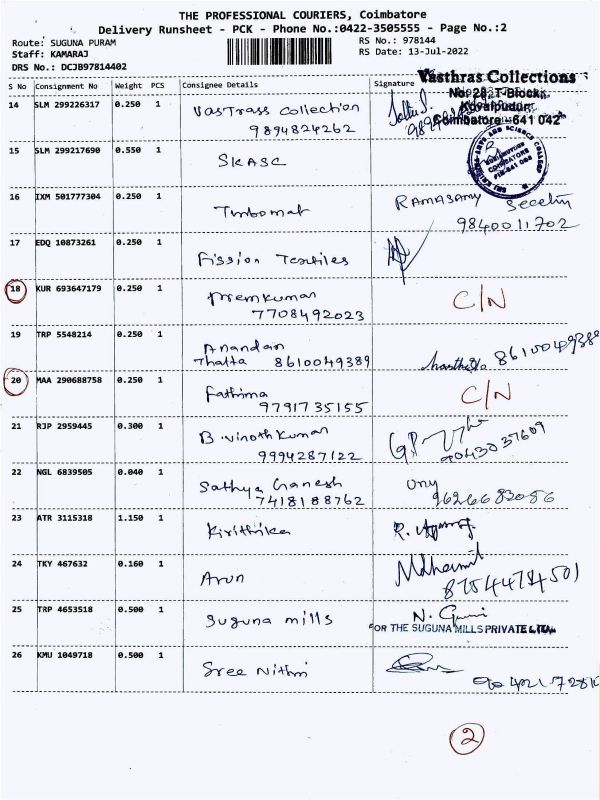 THE PROFESSIONAL COURIERS, Coimbatore
Delivery Runsheet - PCK - Phone No.:0422-3505555 - Page No.:2
Route: SUGUNA PURAM
Staff: KAMARAJ
DRS No.: DCJB97814402
RS No.: 978144
RS Date: 13-Jul-2022
S No Consignment No Weight PCS Consignee Details Signature
Vasthras Collections
No: 28, T-Block,
Kovaipudur,
Coimbatore - 641 042
14 SLM 299226317 0.250 1 Vastrass Collection
9894824262
15 SLM 299217690 0.550 1 SKASC
16 IXM 501777304 0.250 1 Turbomat RAMASAMY
9840011702
17 EDQ 10873261 0.250 1 Fission Textiles
18 KUR 693647179 0.250 1 Premkumar C/N
7708492023
19 TRP 5548214 0.250 1 Anandan
Thatta 8610049389 8610049389
20 MAA 290688758 0.250 1 Fathima C/N
9791735155
21 RJP 2959445 0.300 1 B.vinothkumar
9994287122 9043037609
22 NGL 6839505 0.040 1 Sathya Ganesh
7418188762
23 ATR 3115318 1.150 1 Kirithika
24 TKY 467632 0.160 1 Arun
25 TRP 4653518 0.500 1 Suguna mills
FOR THE SUGUNA MILLS PRIVATE LTD.
26 KMU 1049718 0.500 1 Sree Nithi
2